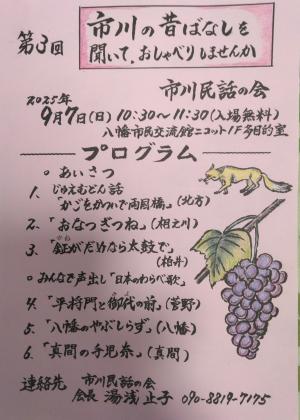 第3回
市川の昔ばなしを
聞いて、おしゃべりしませんか
市川民話の会
2025年
9月7日(日)10:30~11:30(入場無料)
八幡市民交流館ニコット1F多目的室
プログラム
○ あいさつ
1. じゅえむどん話
「かごをかついで両国橋」(北方)
2. 「おなつぎつね」(相之川)
3. 「鉦がだめなら太鼓で」
(柏井)
○ みんなで声出し「日本のわらべ歌」
4. 「平将門と御代の前」(菅野)
5. 「八幡のやぶしらず」(八幡)
6. 「真間の手児奈」(真間)
連絡先 市川民話の会
会長 湯浅止子 090-8819-7175